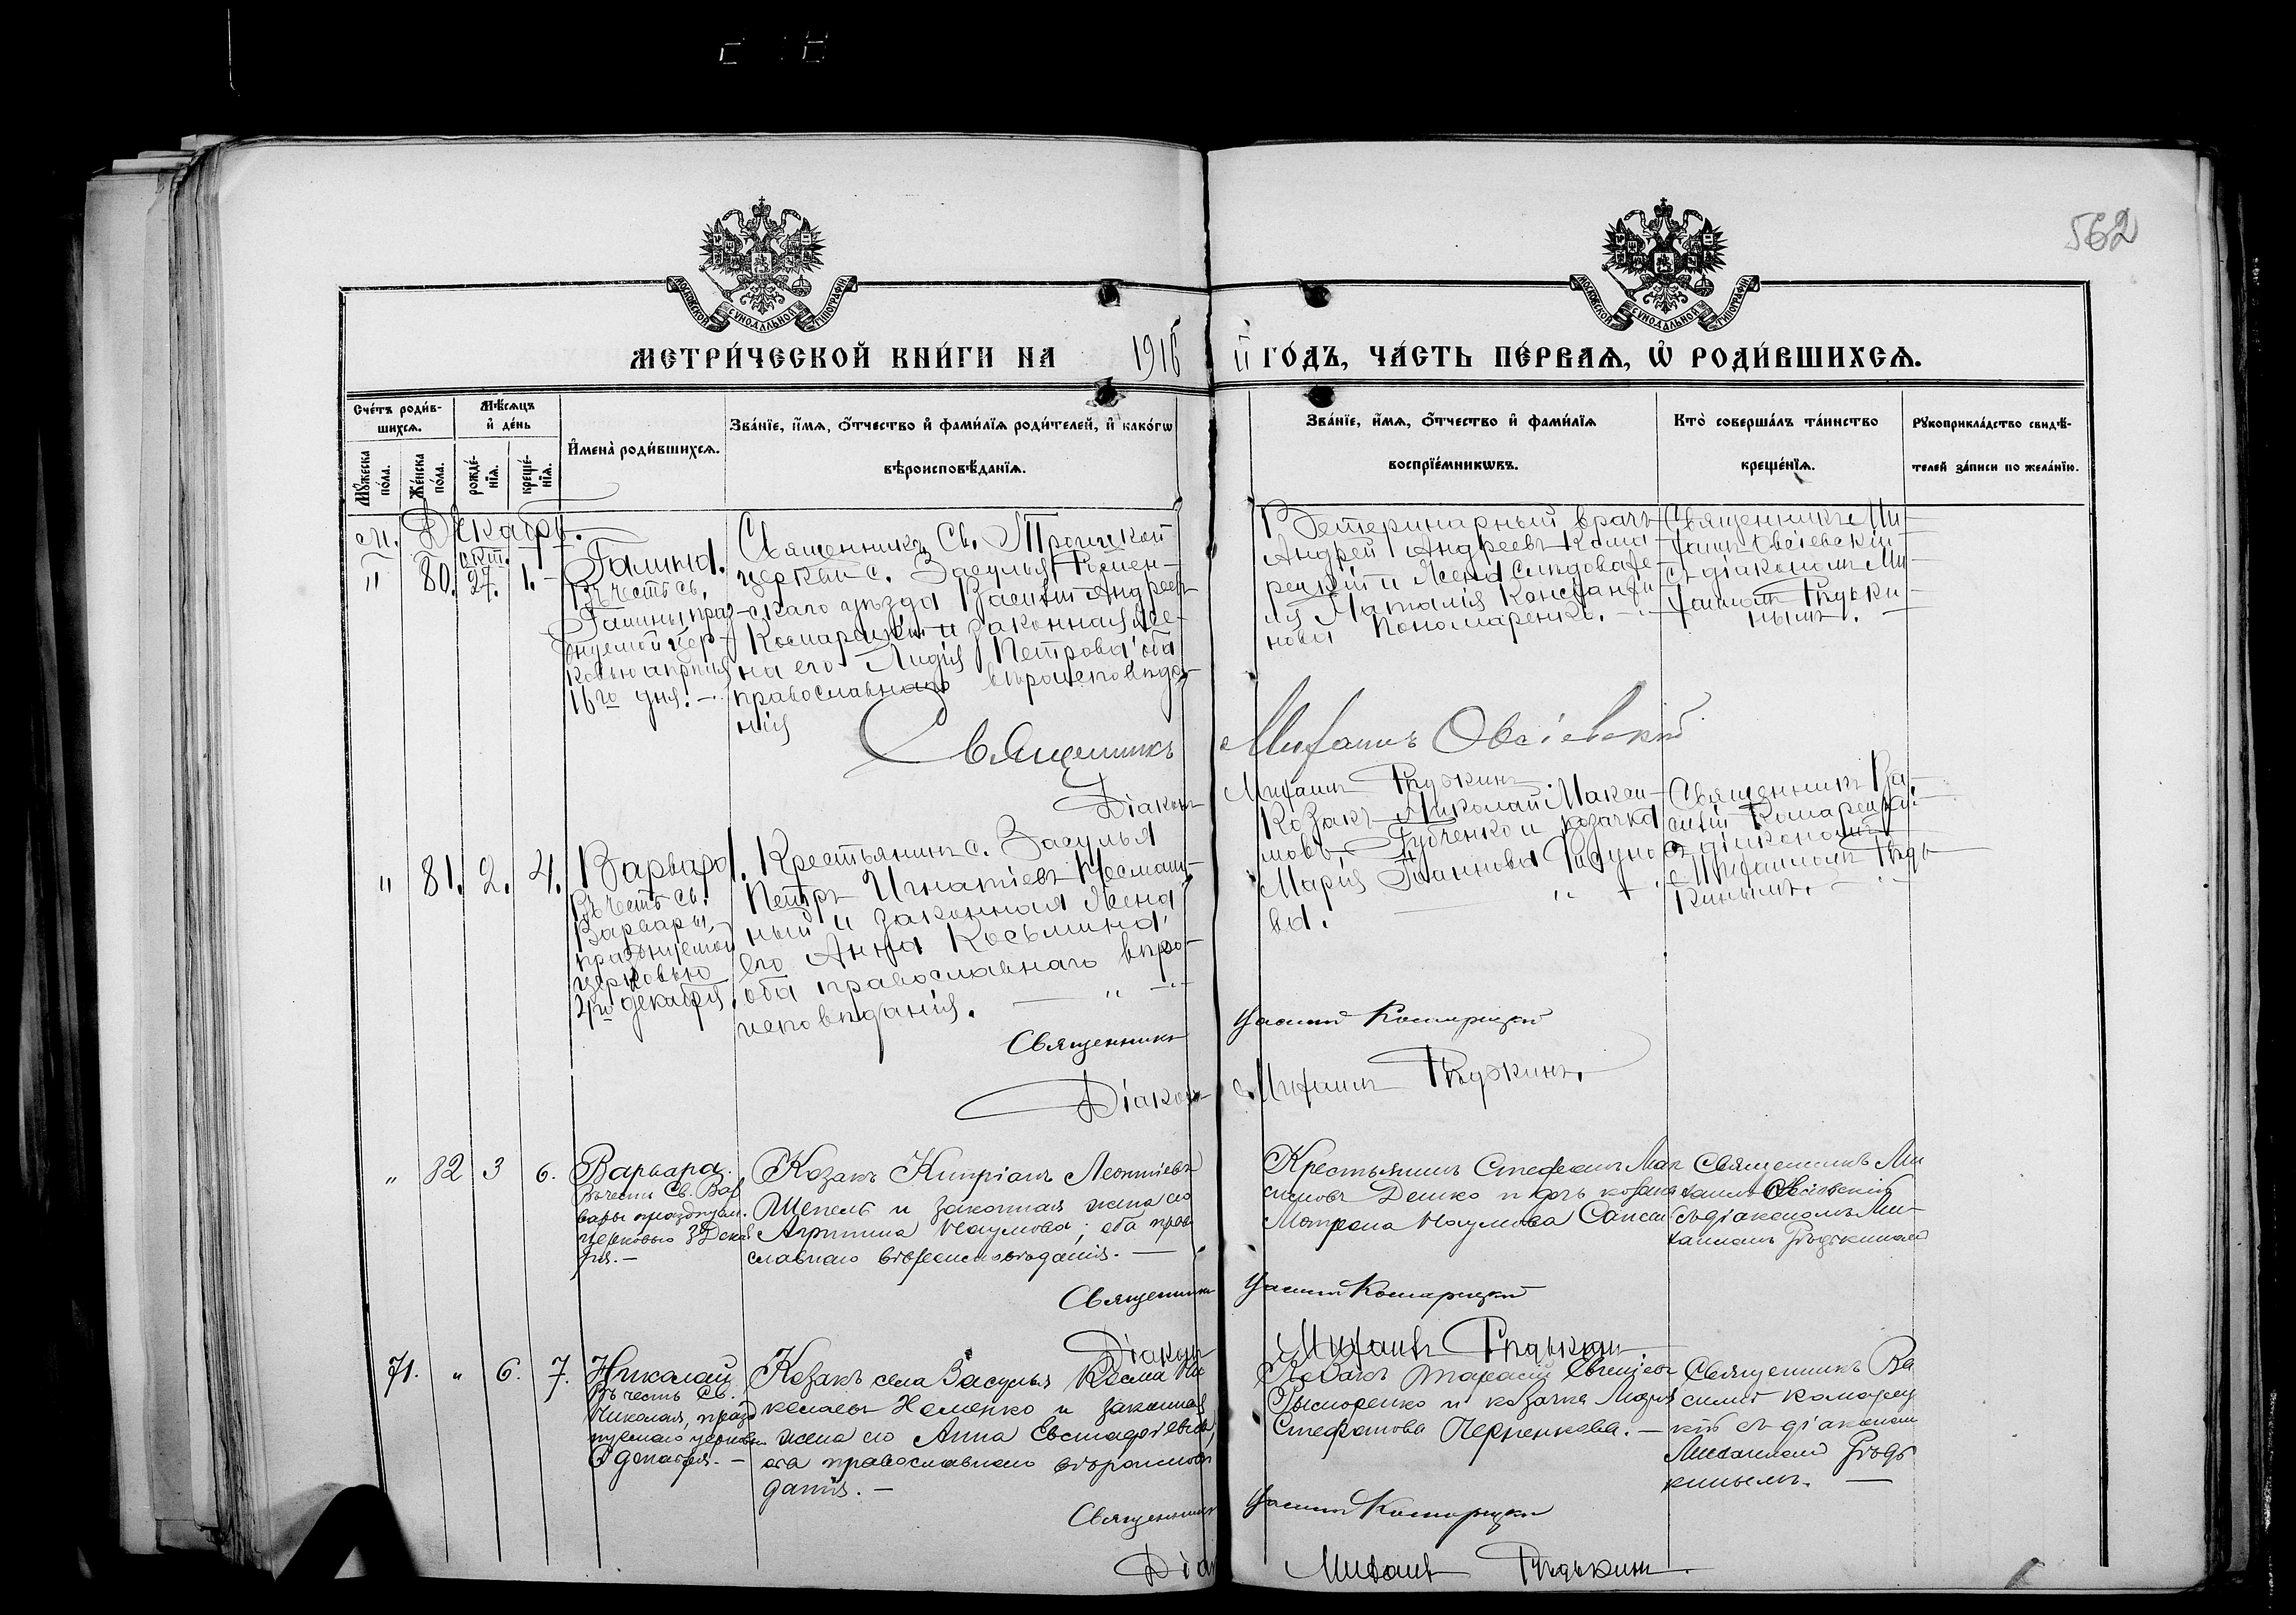 562
МОСКОВСКОЙ СѴНОДАЛЬНОЙ ТИПОГРАФІИ
МОСКОВСКОЙ СѴНОДАЛЬНОЙ ТИПОГРАФІИ
МЕТРИ́ЧЕСКОЙ КНИ́ГИ НА 1916 й ГО́ДЪ, ЧА́СТЬ ПЕ́РВАѦ, Ѡ РОДИ́ВШИХСѦ.
Сче́тъ роди́в-
шихсѧ.
Мꙋ́жеска по́ла.
Же́нска по́ла.
Мѣ́сѧцъ и҆ де́нь
рожде́-
нїѧ.
креще́-
нїѧ.
И҆мена̀ роди́вшихсѧ.
Зва́нїе, и҆́мѧ, ѻ҆́тчество и҆ фамѝлїѧ роди́телей, и҆ како́гѡ
вѣроисповѣ́данїѧ.
Зва́нїе, и҆́мѧ, ѻ҆́тчество и҆ фамѝлїѧ
воспрїе́мникѡвъ.
Кто̀ соверша́лъ та́инство
креще́нїѧ.
Рꙋкоприкла́дство свидѣ́-
телей за́писи по жела́нїю.
Декабрь.
" 80. окт. 27. 1.
Галина.
Въ честь св.
Галины, праз-
днуемой цер-
ковью апрѣля
16го дня. -
Священникъ Св. Троицкой
церкви с. Засулья Ромен-
скаго уѣзда Василій Андреевъ
Комарецкій и законная же-
на его Лидія Петрова оба
православнаго вѣроисповѣда-
нія
Ветеринарный врачъ
Андрей Андреевъ Кома-
рецкій и жена
Наталія Константи-
нова Пономаренко. -
Священникъ Ми-
хаилъ Овсіевскій
съ діакономъ Ми-
хаиломъ Рѣдьки-
нымъ. -
Священникъ Михаилъ Овсіевскій
Діаконъ Михаилъ Рѣдькинъ
" 81. 2. 4.
Варвара.
Въ честь св.
Варвары,
празднуемой
церковью
4го декабря.
Крестьянинъ с. Засулья
Петръ Игнатіевъ
ный и законная жена
его Анна Косьмина
оба православнаго вѣро-
исповѣданія.
Козакъ Николай Макси-
мовъ Губченко и козачка
Марія Іоаннова
ва.
Священникъ Ва-
силій Комарецкій
съ діакономъ
Михаиломъ Рѣдь-
кинымъ.
Священникъ Василій Комарецкій
Діаконъ Михаилъ Рѣдькинъ.
" 82 3 6.
Варвара.
Въ честь Св. Вар
вары празднуем.
церковью Дека
бря. -
Козакъ Кипріанъ Леонтіевъ
Шепель и законная жена его
Агрипина Наумова; оба право
славнаго вѣроисповѣданія. -
Крестьянинъ Стефанъ Мак
симовъ Демко и дочь козака
Матрона Наумова
Священникъ Ми
хаилъ Овсіевскій
съ діакономъ Ми-
хаиломъ Рѣдькинымъ
Священникъ Василій Комарецкій
Діаконъ Михаилъ Рѣдькинъ
71. " 6. 7.
Николай
Въ честь Св.
Николая, празд
нуемаго церковью
6 декабря. -
Козакъ села Засулья Косма Ни
колаевъ Неменко и законная
жена его Анна Евстафіевна,
оба православнаго вѣроисповѣ
данія. -
Козакъ Тарасій
и козачка Марія
Стефанова -
Священникъ Ва
силій Комарец
кій съ діакономъ
Михаиломъ Рѣдь
кинымъ. -
Священникъ Василій Комарецкій
Діаконъ Михаилъ Рѣдькинъ.